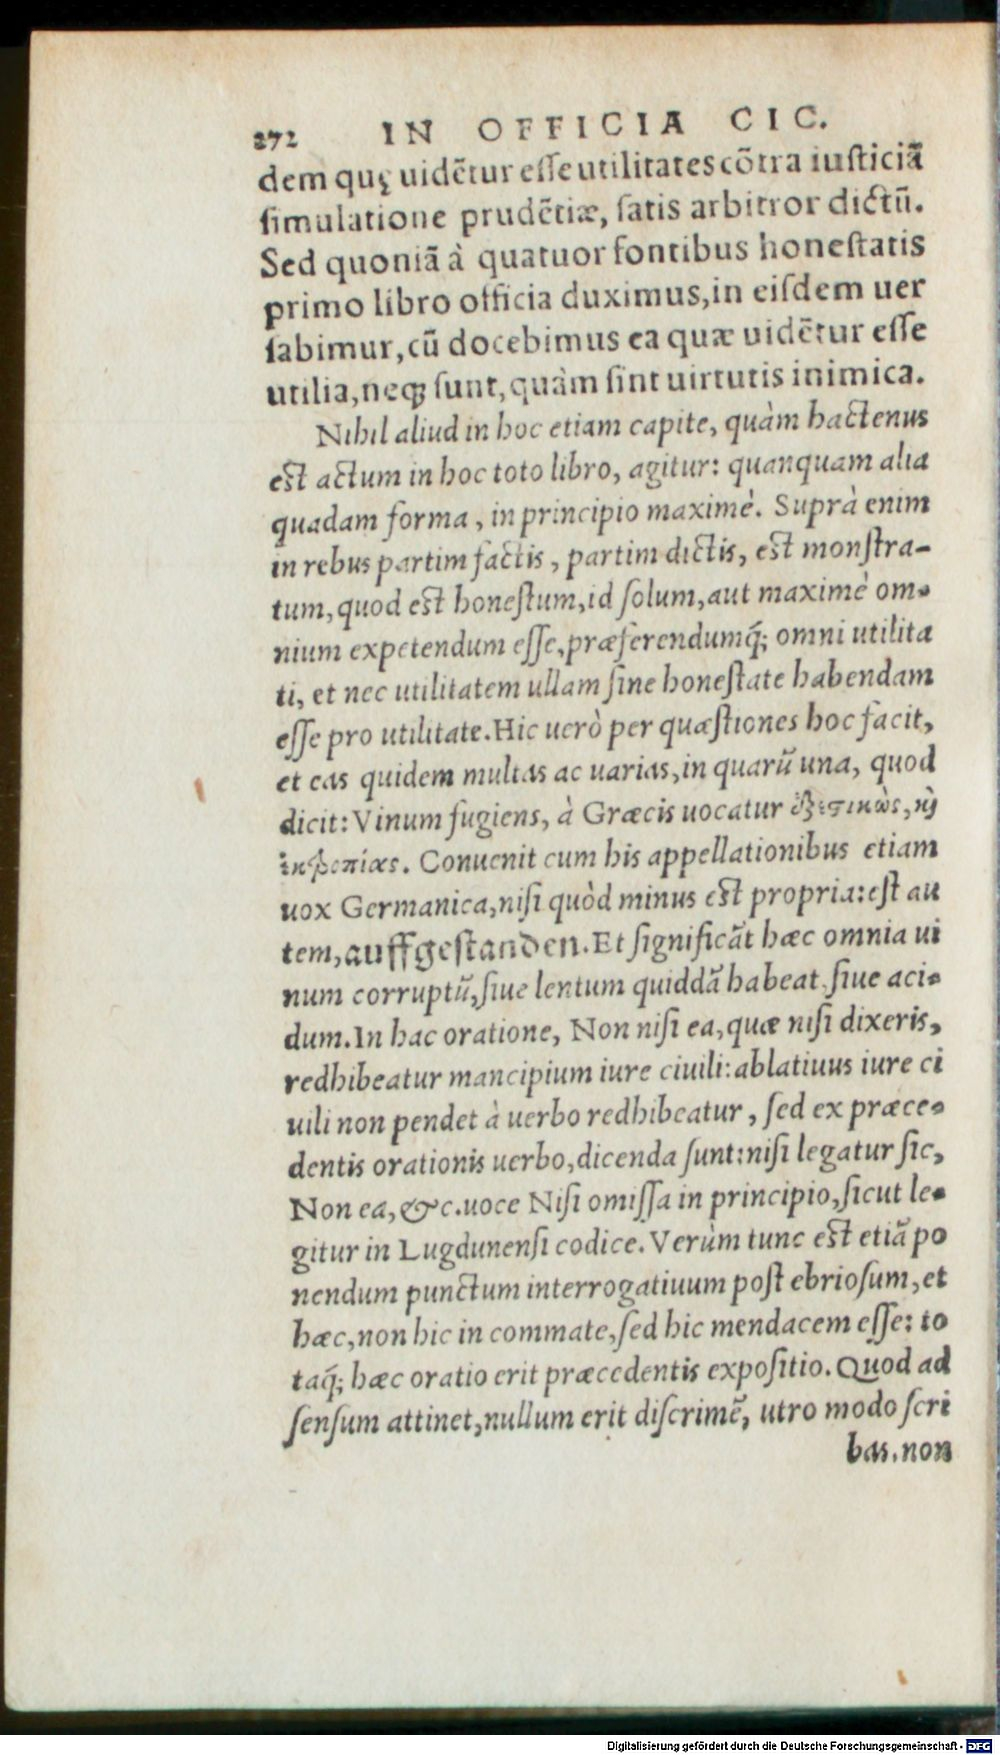 272 IN OFFICIA CIC.
dem quę uidẽtur eſſe utilitates cõtra iuſticiã
ſimulatione prudẽtiæ, ſatis arbitror dictũ.
Sed quoniã à quatuor fontibus honeſtatis
primo libro officia duximus,in eiſdem uer
ſabimur,cũ docebimus ea quæ uidẽtur eſſe
utilia,neqꝫ ſunt,quàm ſint uirtutis inimica.
Nihil aliud in hoc etiam capite, quàm hactenus
est actum in hoc toto libro, agitur: quanquam alia
quadam forma , in principio maximè. Suprà enim
in rebus partim factis , partim dictis, est monſtra-
tum,quod est honeſtum,id ſolum,aut maximè om-
nium expetendum eſſe,præferendumq́; omni utilita
ti, et nec utilitatem ullam ſine honeſtate habendam
eſſe pro utilitate.Hic uerò per quæſtiones hoc facit,
et eas quidem multas ac uarias,in quarũ una, quod
dicit: Vinum fugiens, à Græcis uocatur
Conuenit cum his appellationibus etiam
uox Germanica,niſi quòd minus est propria:eſt au
tem,auffgeſtanden.Et ſignificãt hæc omnia ui
num corruptũ,ſiue lentum quiddã habeat,ſiue aci-
dum.In hac oratione, Non niſi ea,quæ niſi dixeris,
redhibeatur mancipium iure ciuili:ablatiuus iure ci
uili non pendet à uerbo redhibeatur , ſed ex præce-
dentis orationis uerbo,dicenda ſunt:niſi legatur ſic,
Non ea,&c.uoce Niſi omiſſa in principio,ſicut le-
gitur in Lugdunenſi codice.Verùm tunc est etiã po
nendum punctum interrogatiuum poſt ebrioſum,et
hæc,non hic in commate,ſed hic mendacem eſſe: to
taq́; hæc oratio erit præcedentis expoſitio.Quod ad
ſenſum attinet,nullum erit diſcrimẽ, utro modo ſcri
bas.non
Digitalisierung gefördert durch die Deutsche Forschungsgemeinschaft - DFG